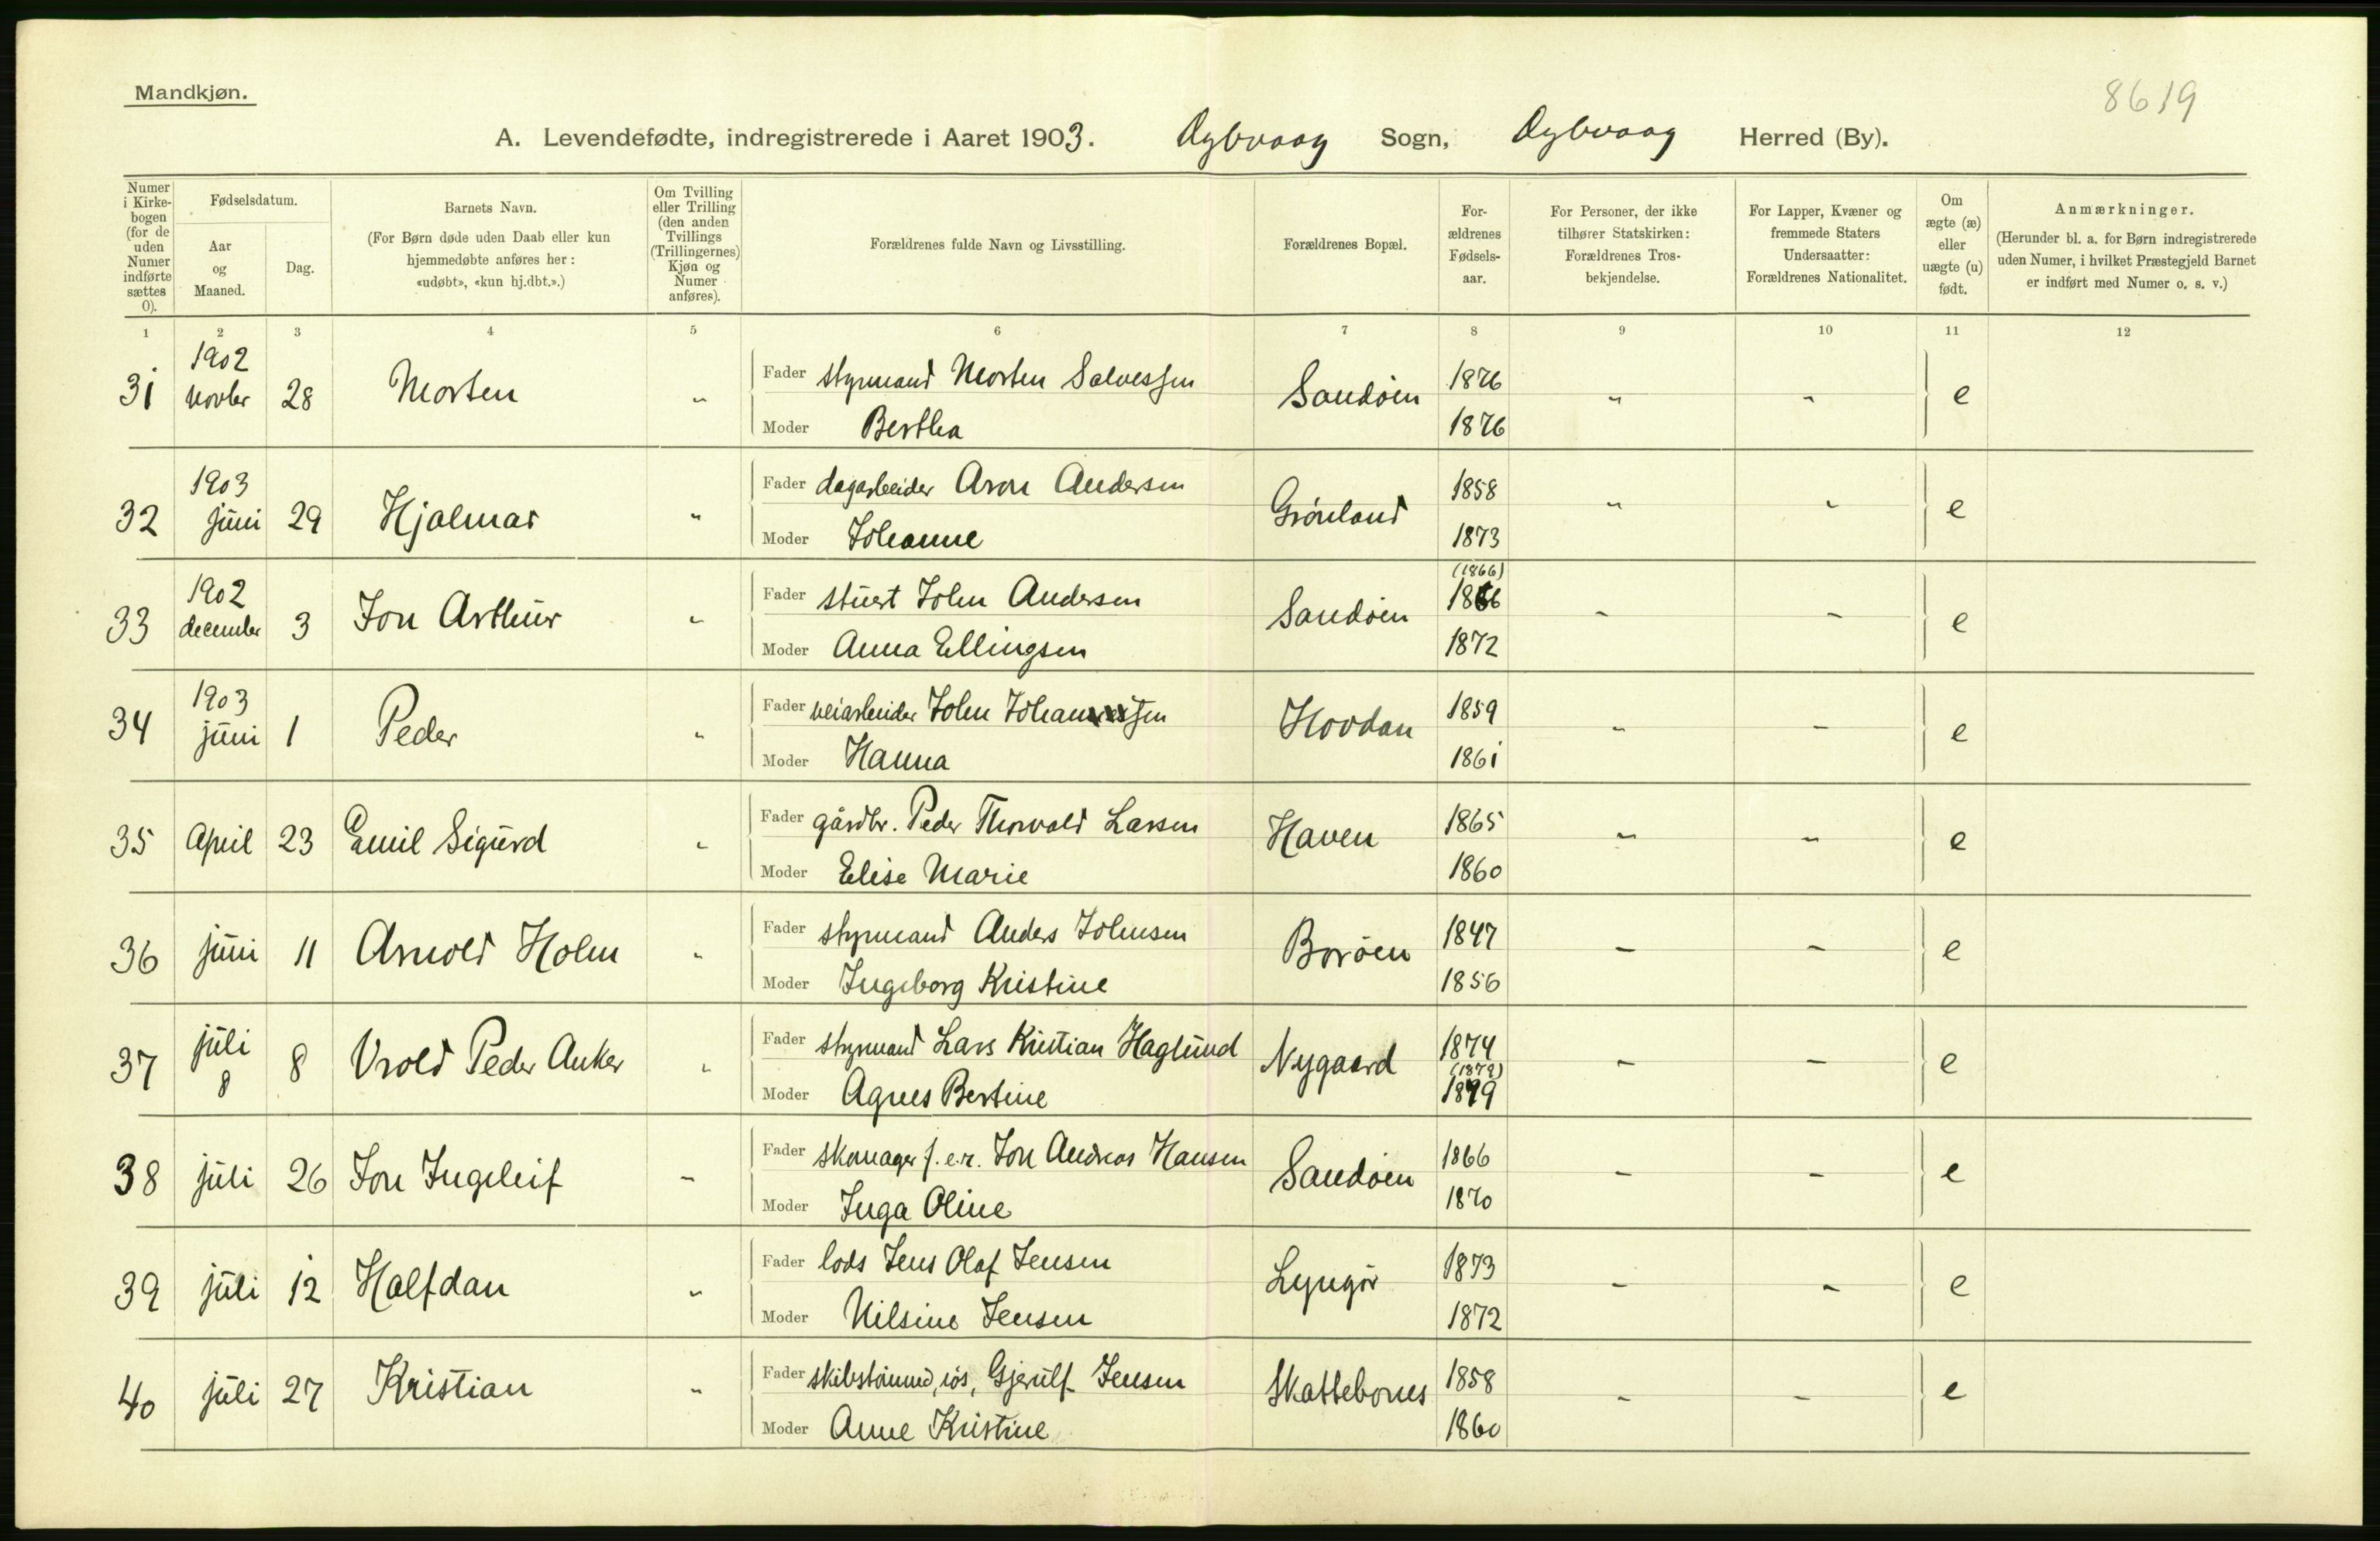 Mandkjøn.
8619
A. Levendefødte, indregistrerede i Aaret 1903. Dybvaag Sogn, Dybvaag Herred (By).
Numer i Kirkebogen (for de uden Numer indførte sættes 0).
Fødselsdatum.
Aar og Maaned.
Dag.
Barnets Navn.
(For Børn døde uden Daab eller kun hjemmedøbte anføres her: «udøbt», «kun hj.dbt.».)
Om Tvilling eller Trilling (den anden Tvillings (Trillingernes) Kjøn og Numer anføres).
Forældrenes fulde Navn og Livsstilling.
Forældrenes Bopæl.
For-ældrenes Fødsels-aar.
For Personer, der ikke tilhører Statskirken: Forældrenes Tros-bekjendelse.
For Lapper, Kvæner og fremmede Staters Undersaatter: Forældrenes Nationalitet.
Om ægte (æ) eller uægte (u) født.
Anmærkninger.
(Herunder bl. a. for Børn indregistrerede uden Numer, i hvilket Præstegjeld Barnet er indført med Numer o. s. v.)
1 2 3 4 5 6 7 8 9 10 11 12
31 1902 novbr 28 Morten " Fader styrmand Morten Salvessen Sandøen 1876 " " e
Moder Bertha 1876
32 1903 juni 29 Hjalmar " Fader dagarbeider Aron Andersen Grønland 1858 " " e
Moder Johanne 1873
33 1902 december 3 Jon Arthur " Fader stuert John Andersen Sandøen (1866) 1866 - - e
Moder Anna Ellingsen 1872
34 1903 juni 1 Peder " Fader veiarbeider John Johannessen Hovdan 1859 - - e
Moder Hanna 1861
35 April 23 Emil Sigurd " Fader gårdbr. Peder Thorvald Larsen Haven 1865 " " e
Moder Elise Marie 1860
36 juni 11 Arnold Holm " Fader styrmand Anders Johnsen Borøen 1847 - - e
Moder Ingeborg Kristine 1856
37 juli 8 8 Vrold Peder Anker " Fader styrmand Lars Kristian Haglund Nygaard 1874 - - e
Moder Agnes Bertine (1879) 1879
38 juli 26 Jon Ingeleif - Fader skomager f.e.r. Jon Andreas Hansen Sandøen 1866 - - e
Moder Inga Oline 1870
39 juli 12 Halfdan " Fader lods Jens Olaf Jensen Lyngør 1873 - - e
Moder Nilsine Jensen 1872
40 juli 27 Kristian " Fader skibstømmed, søs, Gjerulf Jensen Skattebones 1858 - - e
Moder Anne Kristine 1860